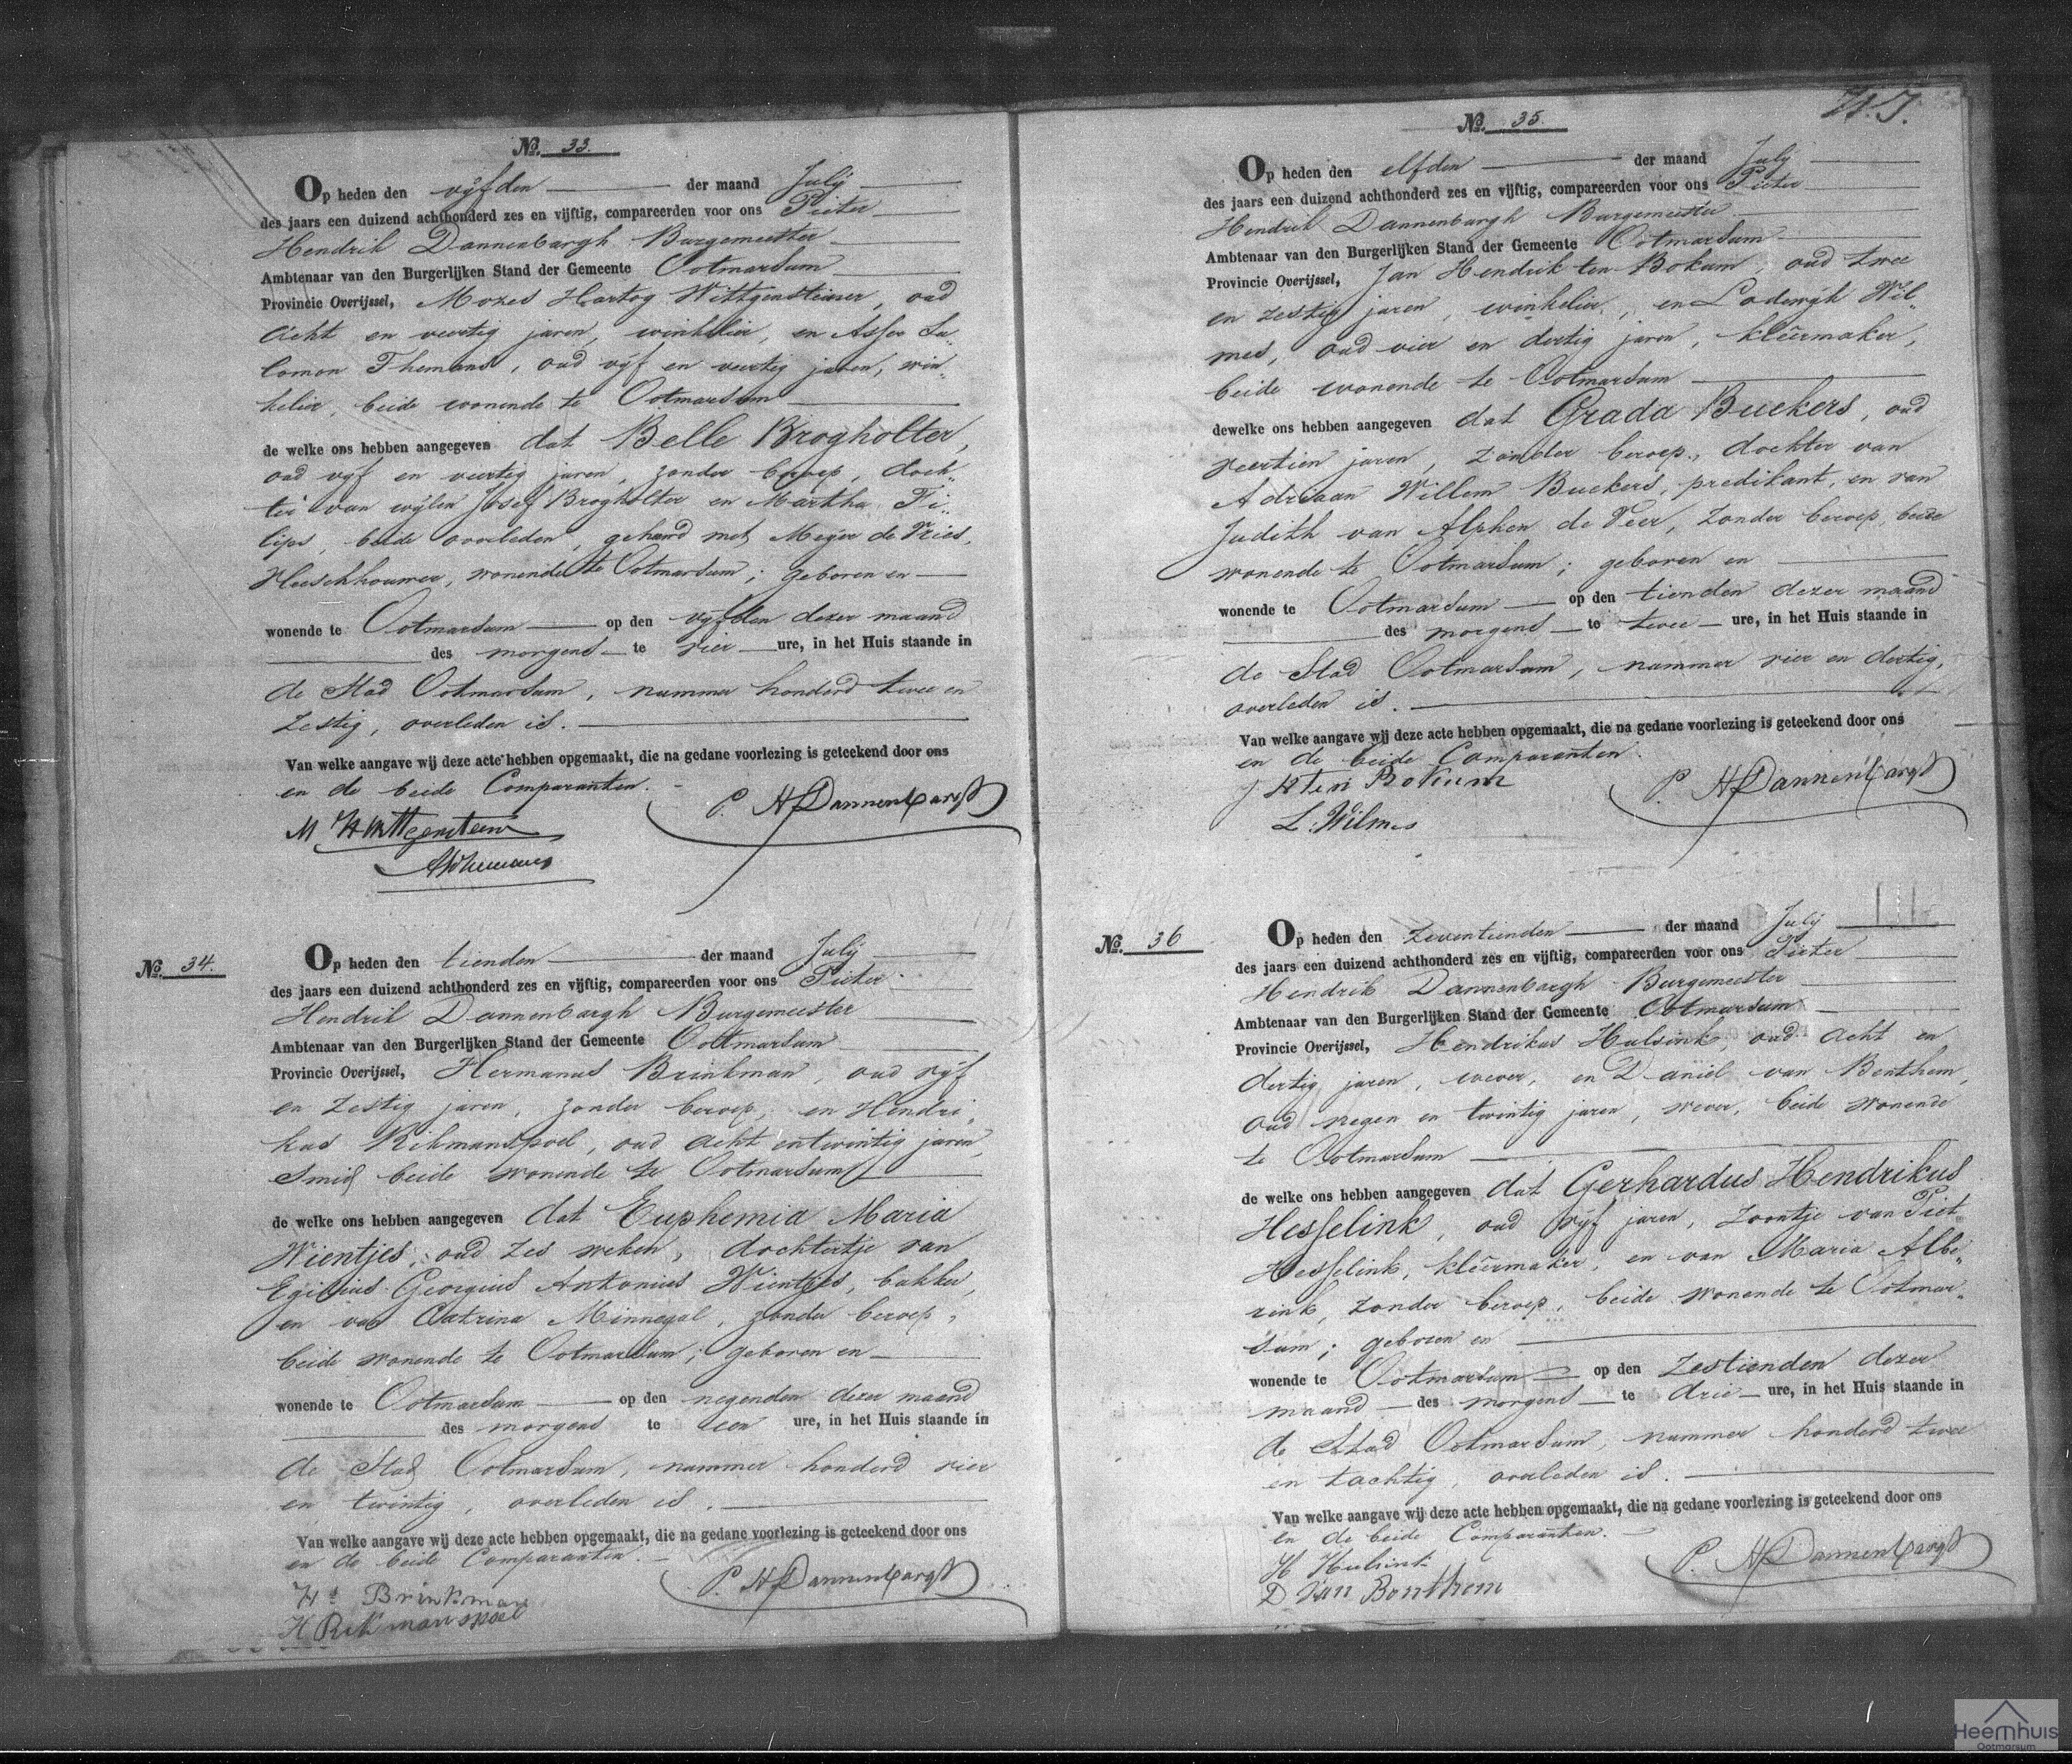 No. 33.
Op heden den vijfden der maand Julij
des jaars een duizend achthonderd zes en vijftig, compareerden voor ons Pieter
Hendrik Dannenbargh Burgemeester
Ambtenaar van den Burgerlijken Stand der Gemeente Ootmarsum
Provincie Overijssel, Mozes Hartog Wittgensteiner, oud
acht en veertig jaren, winkelier, en Asser Sa„
lomon Themans, oud vijf en veertig jaren, win„
kelier, beide wonende te Ootmarsum
de welke ons hebben aangegeven dat Belle Brogholter,
oud vijf en veertig jaren, zonder beroep, doch„
ter van wijlen Josef Brogholter en Martha Fi„
lips, beide overleden, gehuwd met Meijer de Vries,
Vleeschhouwer, wonende te Ootmarsum; geboren en
wonende te Ootmarsum op den vijfden dezer maand
des morgens te vier ure, in het Huis staande in
de Stad Ootmarsum, nummer honderd twee en
zestig, overleden is.
Van welke aangave wij deze acte hebben opgemaakt, die na gedane voorlezing is geteekend door ons
en de beide Comparanten.
P. H Dannenbargh
No. 34.
Op heden den tienden der maand Julij
des jaars een duizend achthonderd zes en vijftig, compareerden voor ons Pieter
Hendrik Dannenbargh Burgemeester
Ambtenaar van den Burgerlijken Stand der Gemeente Ootmarsum
Provincie Overijssel, Hermanus Brinkman, oud vijf
en zestig jaren, zonder beroep, en Hendri„
kus Rikmanspoel, oud acht en twintig jaren,
Smid beide wonende te Ootmarsum
de welke ons hebben aangegeven dat Euphemia Maria
Wientjes, oud zes weken, dochtertje van
Egidius Georgius Antonius Wientjes, bakker,
en van Catrina Minnegal, zonder beroep,
beide wonende te Ootmarsum; geboren en
wonende te Ootmarsum op den negenden dezer maand
des morgens te een ure, in het Huis staande in
de Stad Ootmarsum, nummer honderd vier
en twintig, overleden is.
Van welke aangave wij deze acte hebben opgemaakt, die na gedane voorlezing is geteekend door ons
en de beide Comparanten.
P. H Dannenbargh
Hs Brinkman
H Rikmanspoel
No. 35.
Op heden den elfden der maand Julij
des jaars een duizend achthonderd zes en vijftig, compareerden voor ons Pieter
Hendrik Dannenbargh Burgemeester
Ambtenaar van den Burgerlijken Stand der Gemeente Ootmarsum
Provincie Overijssel, Jan Hendrik ten Bokum, oud twee
en zestig jaren, winkelier, en Lodewijk Wil„
mes, oud vier en dertig jaren, kleêrmaker,
beide wonende te Ootmarsum
dewelke ons hebben aangegeven dat Grada Buekers, oud
veertien jaren, zonder beroep, dochter van
Adriaan Willem Buekers, predikant, en van
Judith van Alphen de Veer, zonder beroep, beide
wonende te Ootmarsum; geboren en
wonende te Ootmarsum op den tienden dezer maand
des morgens te twee ure, in het Huis staande in
de Stad Ootmarsum, nummer vier en dertig,
overleden is.
Van welke aangave wij deze acte hebben opgemaakt, die na gedane voorlezing is geteekend door ons
en de beide Comparanten.
J H ten Bokum
P. H Dannenbargh
L. Wilmes
No. 36
Op heden den zeventienden der maand Julij
des jaars een duizend achthonderd zes en vijftig, compareerden voor ons Pieter
Hendrik Dannenbargh Burgemeester
Ambtenaar van den Burgerlijken Stand der Gemeente Ootmarsum
Provincie Overijssel, Hendrikus Hulsink, oud acht en
dertig jaren, wever, en Daniel van Benthem,
oud negen en twintig jaren, wever, beide wonende
te Ootmarsum
de welke ons hebben aangegeven dat Gerhardus Hendrikus
Hesselink, oud vijf jaren, zoontje van Piet
Hesselink, kleêrmaker, en van Maria Albe„
rink, zonder beroep, beide wonende te Ootmar„
sum; geboren en
wonende te Ootmarsum op den zestienden dezer
maand des morgens te drie ure, in het Huis staande in
de Stad Ootmarsum, nummer honderd twee
en tachtig, overleden is.
Van welke aangave wij deze acte hebben opgemaakt, die na gedane voorlezing is geteekend door ons
en de beide Comparanten.
H Hulsink
P. H Dannenbargh
D van Benthem
Heemhuis
Ootmarsum